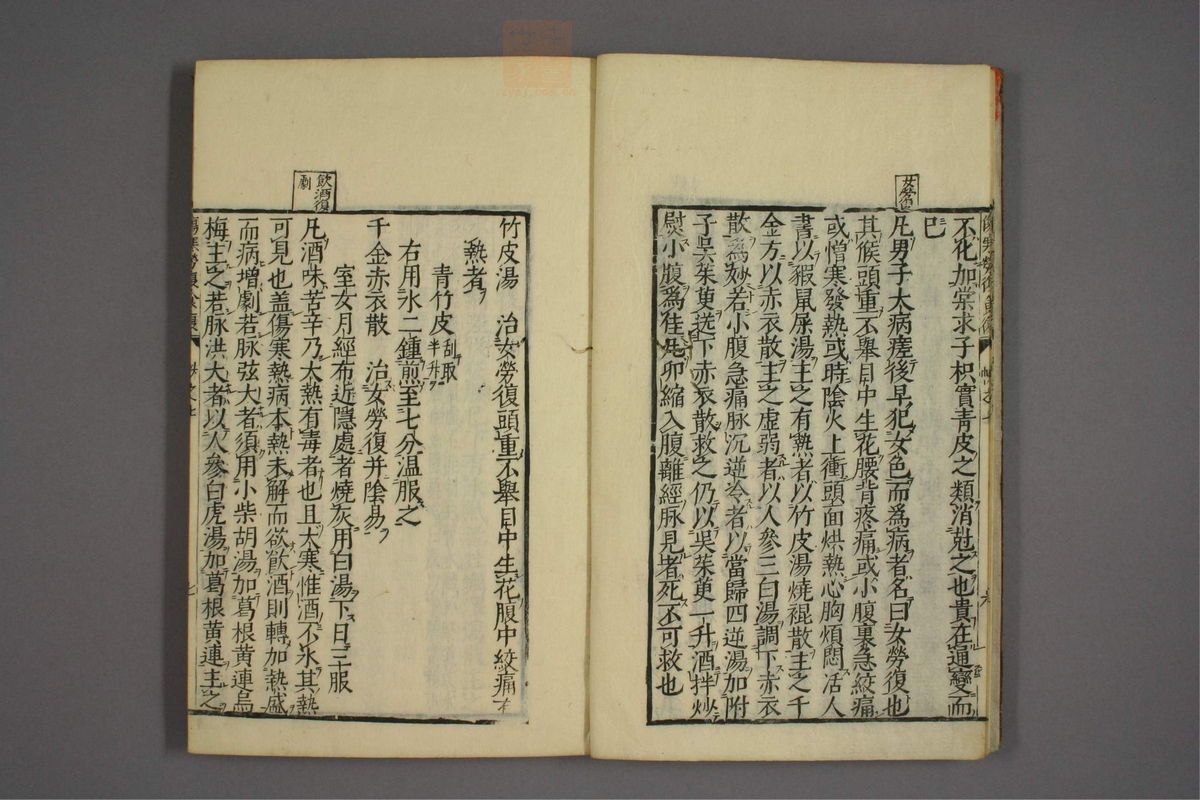 不化加棠求子枳實青皮之類消尅之也貴在通變而
巳
女勞復
凡男子大病瘥後早犯女色而爲病者名曰女勞復也
其候頭重不舉目中生花腰背疼痛或小腹裏急絞痛
或憎寒發熱或時陰火上衝頭面烘熱心胸煩悶活人
書以豭鼠屎湯主之有熱者以竹皮湯燒裩散主之千
金方以赤衣散主之虛弱者以人參三白湯調下赤衣
散爲妙若小腹急痛脉沉逆冷者以當歸四逆湯加附
子吳茱萸送下赤衣散救之仍以吳茱萸一升酒拌炒
熨小腹爲佳凡卵縮入腹離經脉見者死不可救也
竹皮湯 治女勞復頭重不舉目中生花腹中絞痛有
熱者
青竹皮刮取半升
右用水二鍾煎至七分温服之
千金赤衣散 治女勞復并陰易
室女月經布近隱處者燒灰用白湯下日三服
飲酒復劇
凡酒味苦辛乃大熱有毒者也且大寒惟酒不氷其熱
可見也盖傷寒熱病本熱未解而欲飮酒則轉加熱盛
而病增劇若脉弦大者須用小柴胡湯加葛根黄連烏
梅主之若脉洪大者以人參白虎湯加葛根黄連主之